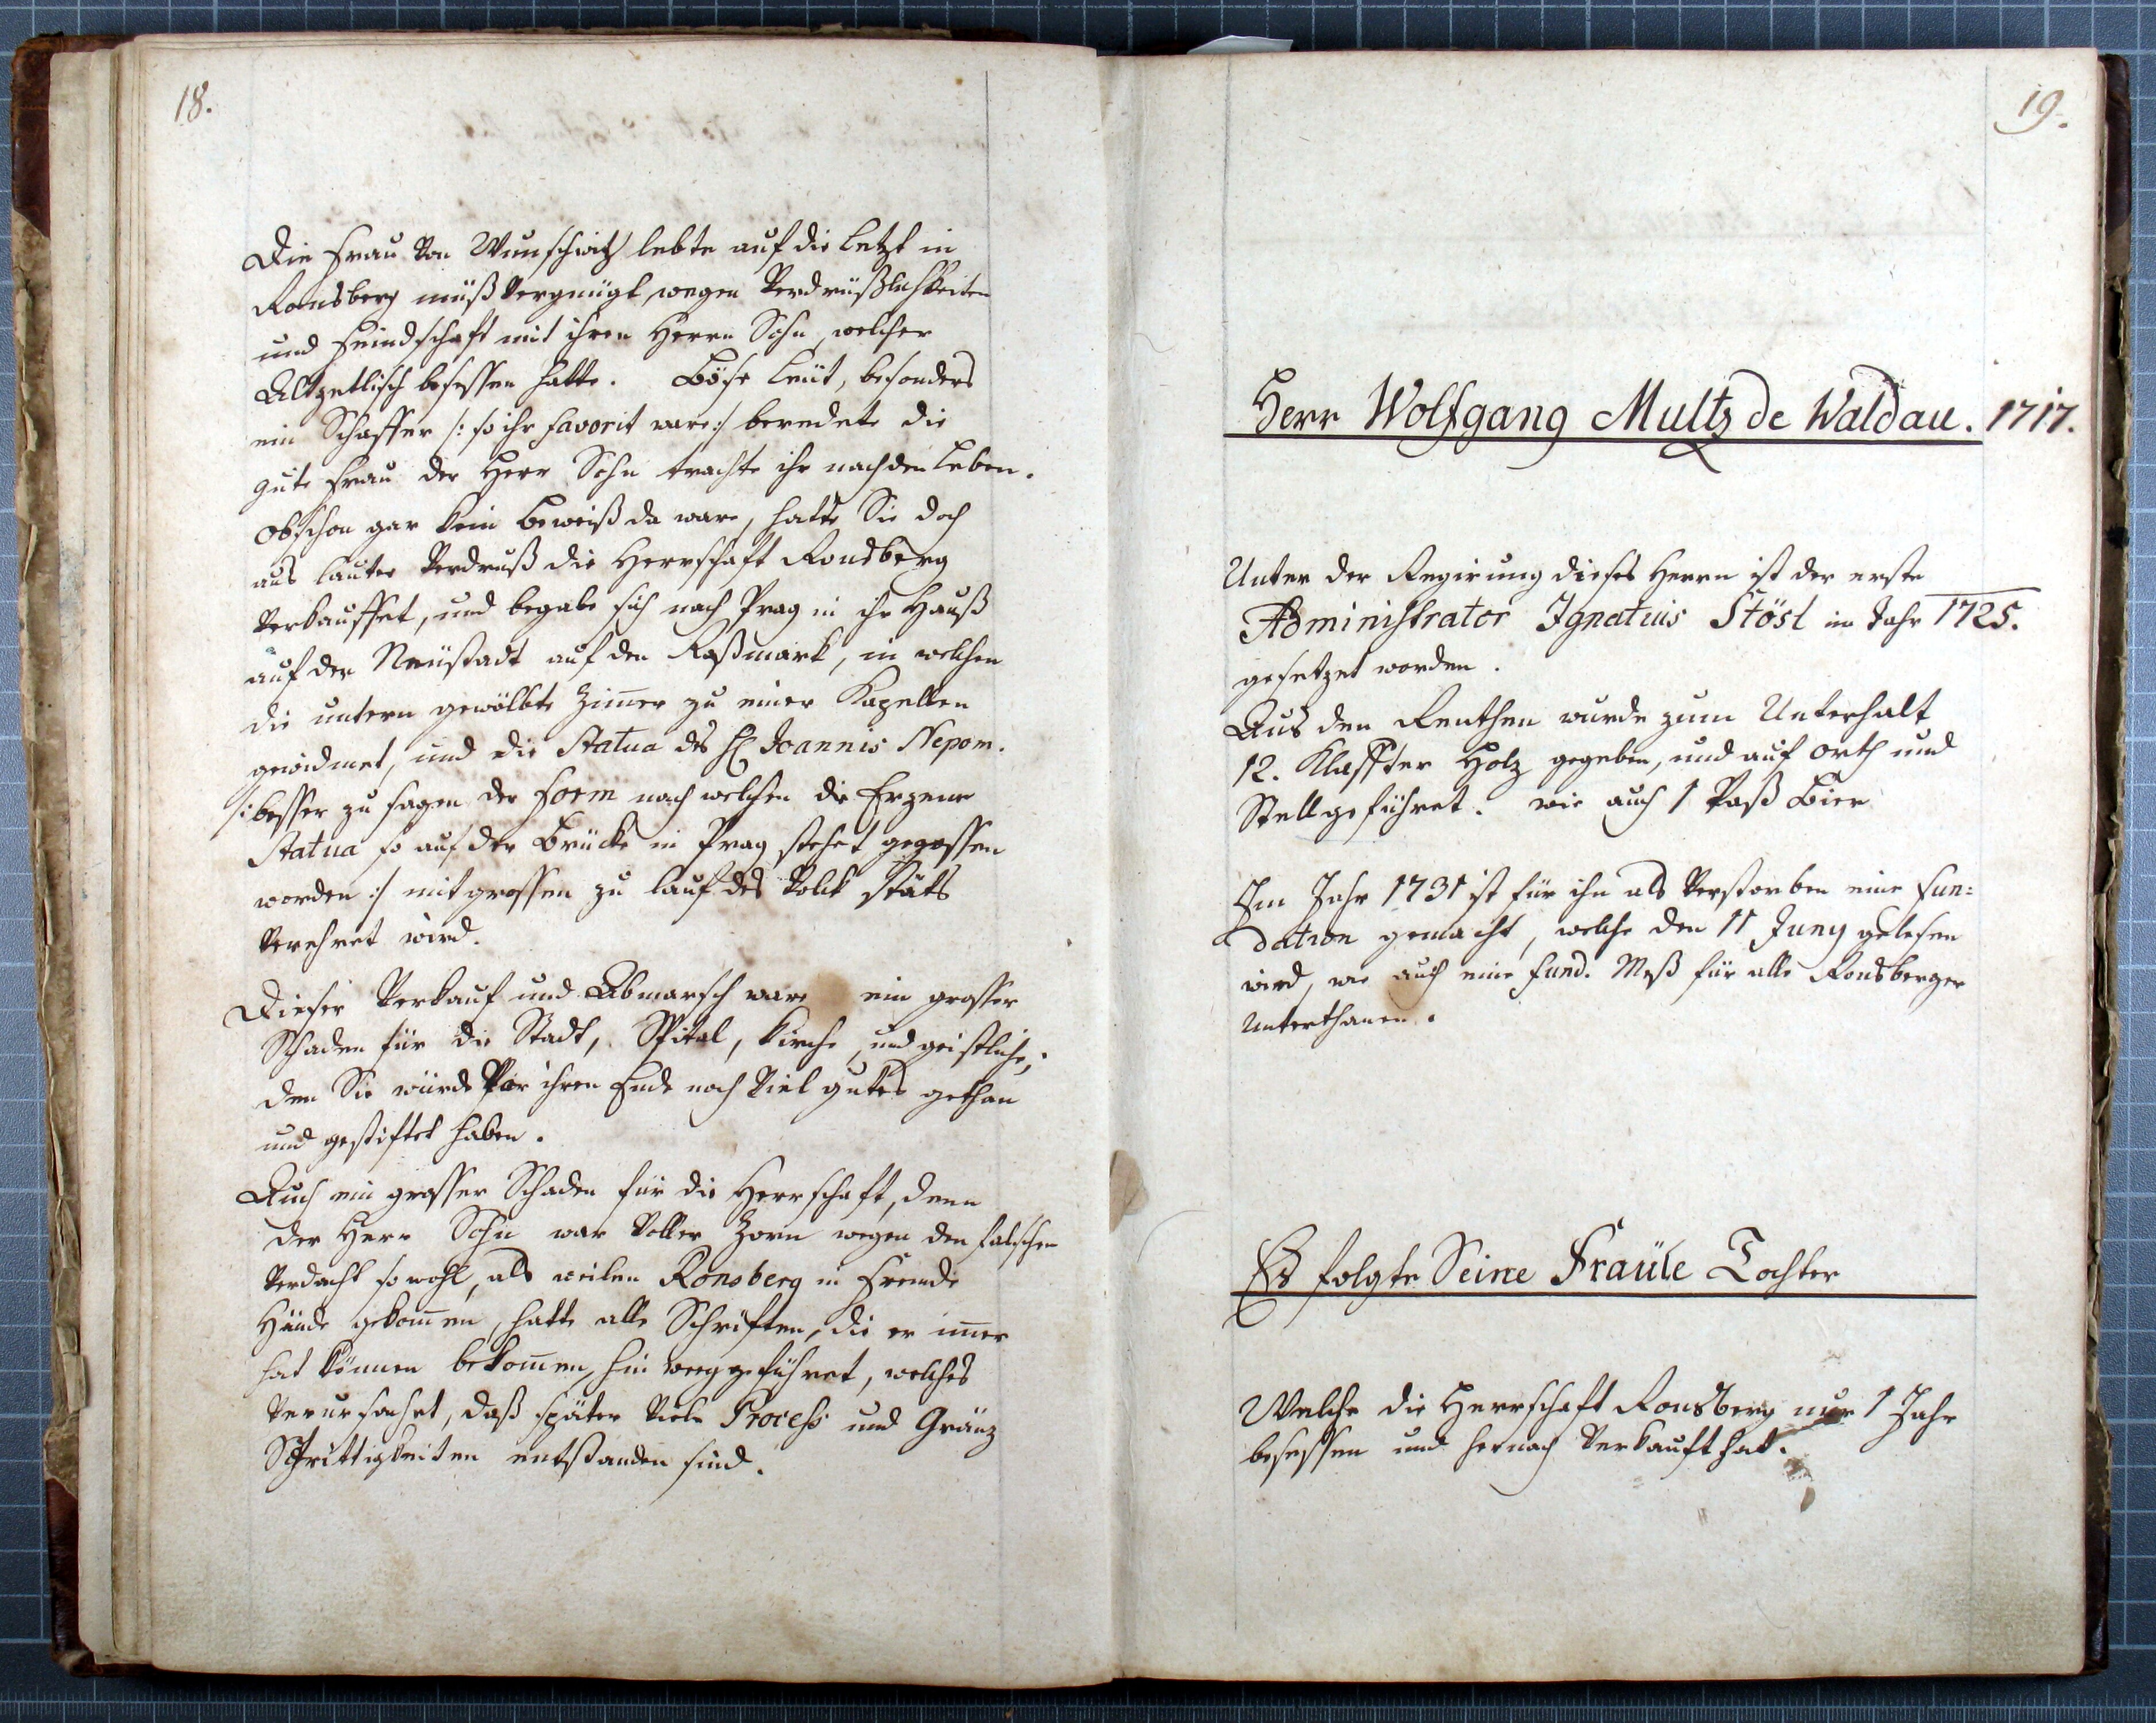 18.
Die Frau von Wunschwitz lebte auf die letzt in
Ronsberg mißvergnügt, wegen Verdrüßlichkeiten
und Feindschaft mit ihren Herrn Sohn, welcher
Altzetlisch besessen hatte. Böse Leüt, besonders
ein Schaffer /: so ihr favorit ware :/ beredete die
gute Frau der Herr Sohn trachte ihr nach den Leben.
obschon gar kein Beweiß da ware, hatte Sie doch
aus lauter Verdruß die Herrschaft Ronsberg
verkauffet, und begabe sich nach Prag in ihr Hauß
auf der Neüstadt auf den Roßmark, in welchen
die untern gewölbte Zimer zu einer Kapellen
gewidmet, und die Statua des H: Joannis Nepom.
/: besser zu sagen der Form nach welchen die Erzene
Statua so auf der Brücke in Prag stehet gegossen
worden :/ mit grossen zu lauf des Volk stäts
verehret wird.
Dieser Verkauf und Abmarsch ware ein grosser
Schaden für die Stadt, Spital, Kirche, und geistliche,
den Sie würde vor ihren Ende noch viel gutes gethan
und gestiftet haben.
Auch ein grosser Schaden für die Herrschaft, denn
der Herr Sohn war voller Zorn wegen den falschen
Verdacht so wohl, als weilen Ronsberg in Fremde
Hände gekomen, hatte alle Schriften, die er imer
hat können bekomen, hin weggeführet, welches
verursachet, daß später viele Process und Gränz
Strittigkeiten entstanden sind.
19.
Herr Wolfgang Multz de Waldau. 1717.
Unter der Regirung dieses Herrn ist der erste
Administrator Ignatius Stöst im Jahr 1725.
gesetzet worden.
Aus den Renthen wurde zum Unterhalt
12. Klaffter Holz gegeben, und auf orth und
Stell geführet. wie auch 1 Vaß Bier
Im Jahr 1731 ist für ihn als Verstorben eine Fun=
dation gemacht, welche den 11 Juny gelesen
wird, wie auch eine fund. Meß für alle Ronsberger
Unterthanen.
Es folgte Seine Fraüle Tochter
Welche die Herrschaft Ronsberg nur 1 Jahr
besessen und hernach verkauft hat.